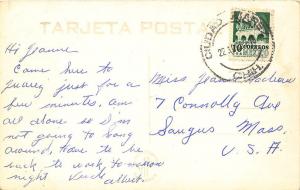 TARJETA POSTAL
CIUDAD JUAREZ
CHIH.
CORREOS
Hi Jeanne
Came here to
Juarez just for a
few minutes. am
all alone so I'm
not going to hang
around, have to be
back to work tomorrow
night
Albert.
Miss Jeanne
7 Connolly Ave
Saugus Mass.
U. S. A.